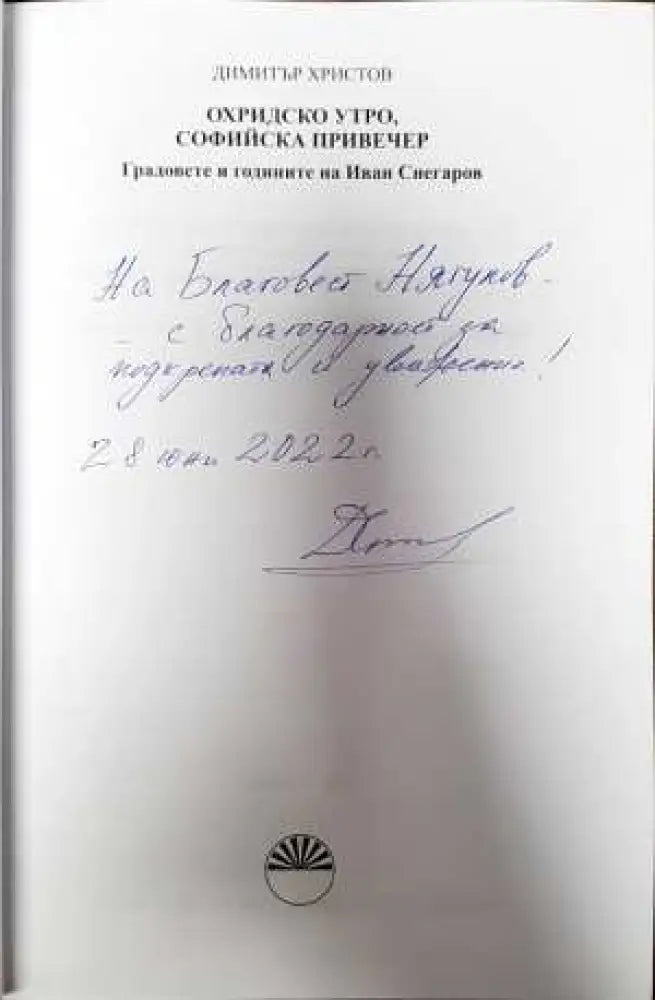 ДИМИТЪР ХРИСТОВ
ОХРИДСКО УТРО,
СОФИЙСКА ПРИВЕЧЕР
Градовете и годините на Иван Снегаров
На Благовест Нягулов -
с благодарност за
подкрепата и уважение!
28 юни 2022 г.